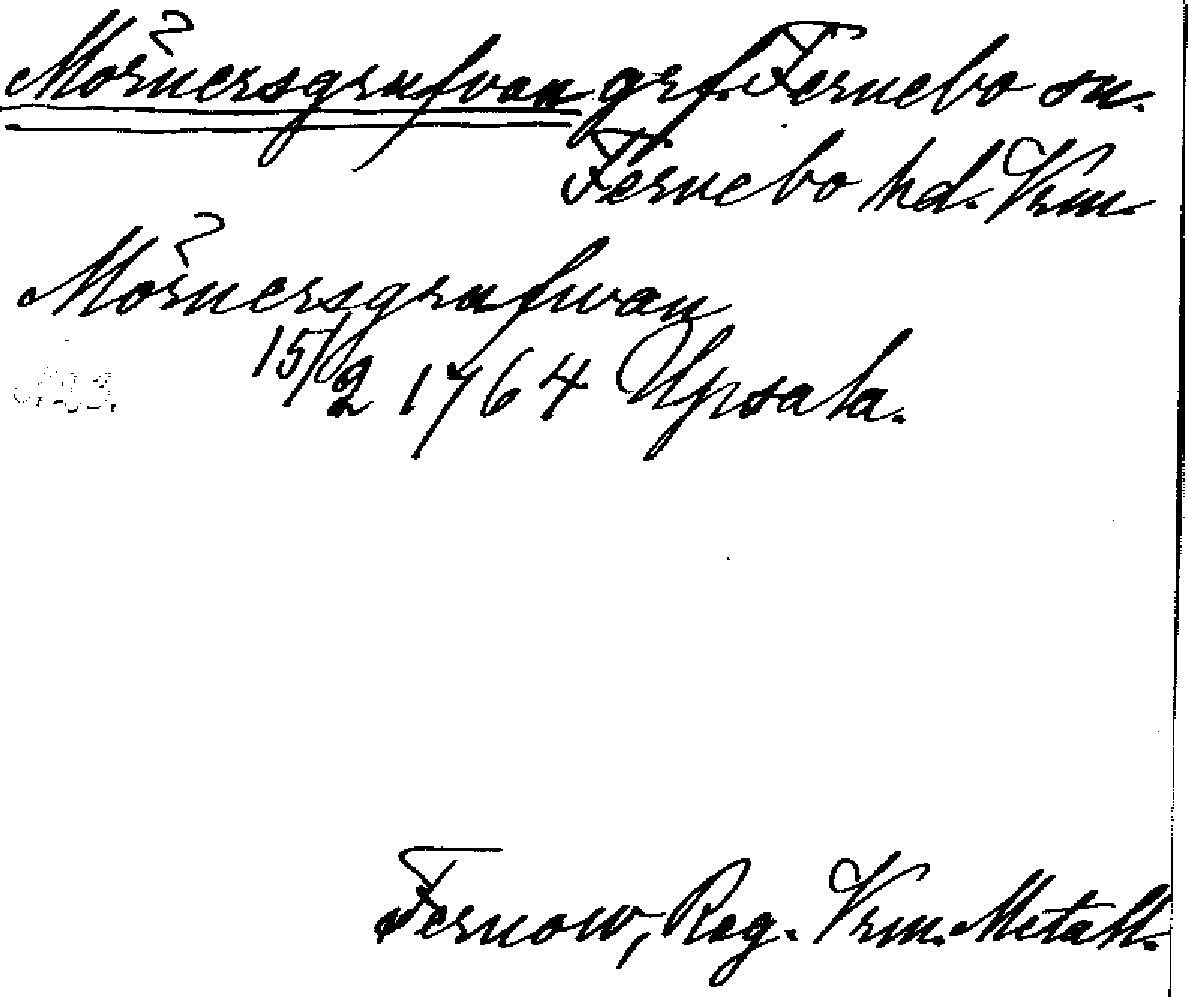 Mörnersgrufvan grf. Fernebo sn.
Fernebo hd. Vrm.
Mörnersgrufvan
15/2 1764 Upsala.
Fernow, Reg. Vrm. Metall.